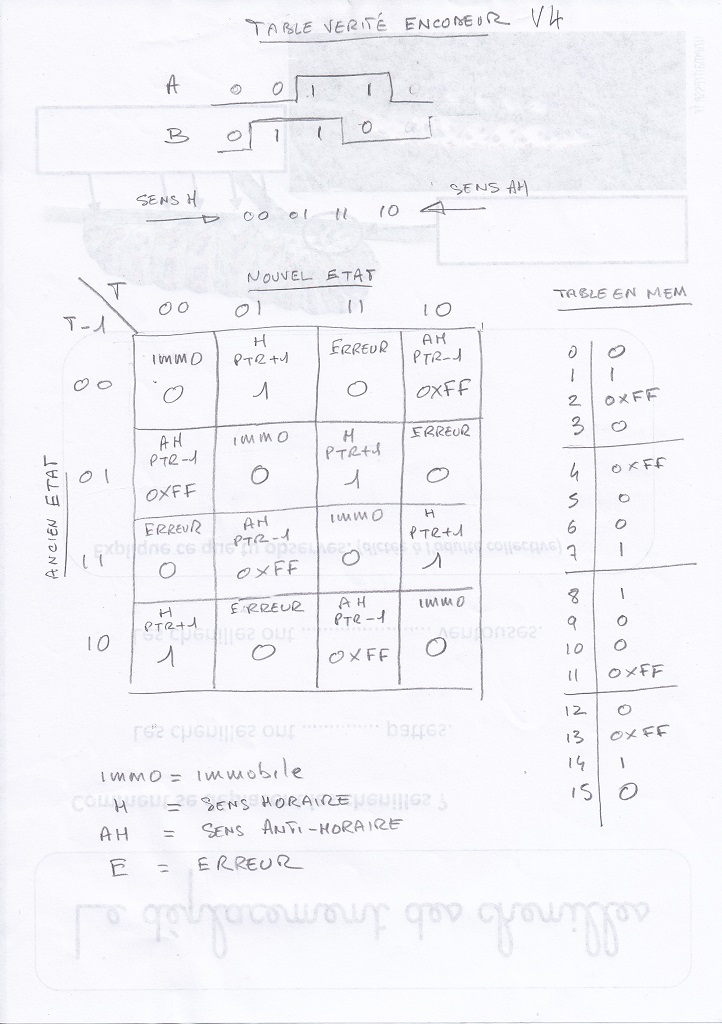 TABLE VERITÉ ENCODEUR V4
A 0 0 1 1 0
B 0 1 1 0 0
SENS H 00 01 11 10 SENS AH
NOUVEL ETAT
TABLE EN MEM
T
T-1
00 01 11 10
ANCIEN ETAT
00
IMMO 0
H PTR+1 1
ERREUR 0
AH PTR-1 0XFF
01
AH PTR-1 0XFF
IMMO 0
H PTR+1 1
ERREUR 0
11
ERREUR 0
AH PTR-1 0XFF
IMMO 0
H PTR+1 1
10
H PTR+1 1
ERREUR 0
AH PTR-1 0XFF
IMMO 0
0 0
1 1
2 0XFF
3 0
4 0XFF
5 0
6 0
7 1
8 1
9 0
10 0
11 0XFF
12 0
13 0XFF
14 1
15 0
IMMO = immobile
H = SENS HORAIRE
AH = SENS ANTI-HORAIRE
E = ERREUR
Explique ce que tu observes. (dictée à l'adulte collective)
Les chenilles ont .................... ventouses.
Les chenilles ont ............ pattes.
Comment se déplacent les chenilles ?
Le déplacement des chenilles